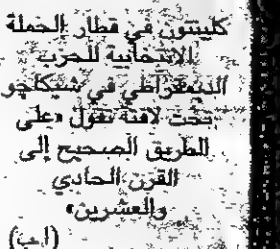 كلينتون في قطار الحملة
الانتخابية للحزب
الديمقراطي في شيكاجو
تحت لافتة تقول «على
الطريق الصحيح إلى
القرن الحادي
والعشرين»
(أ.ب)